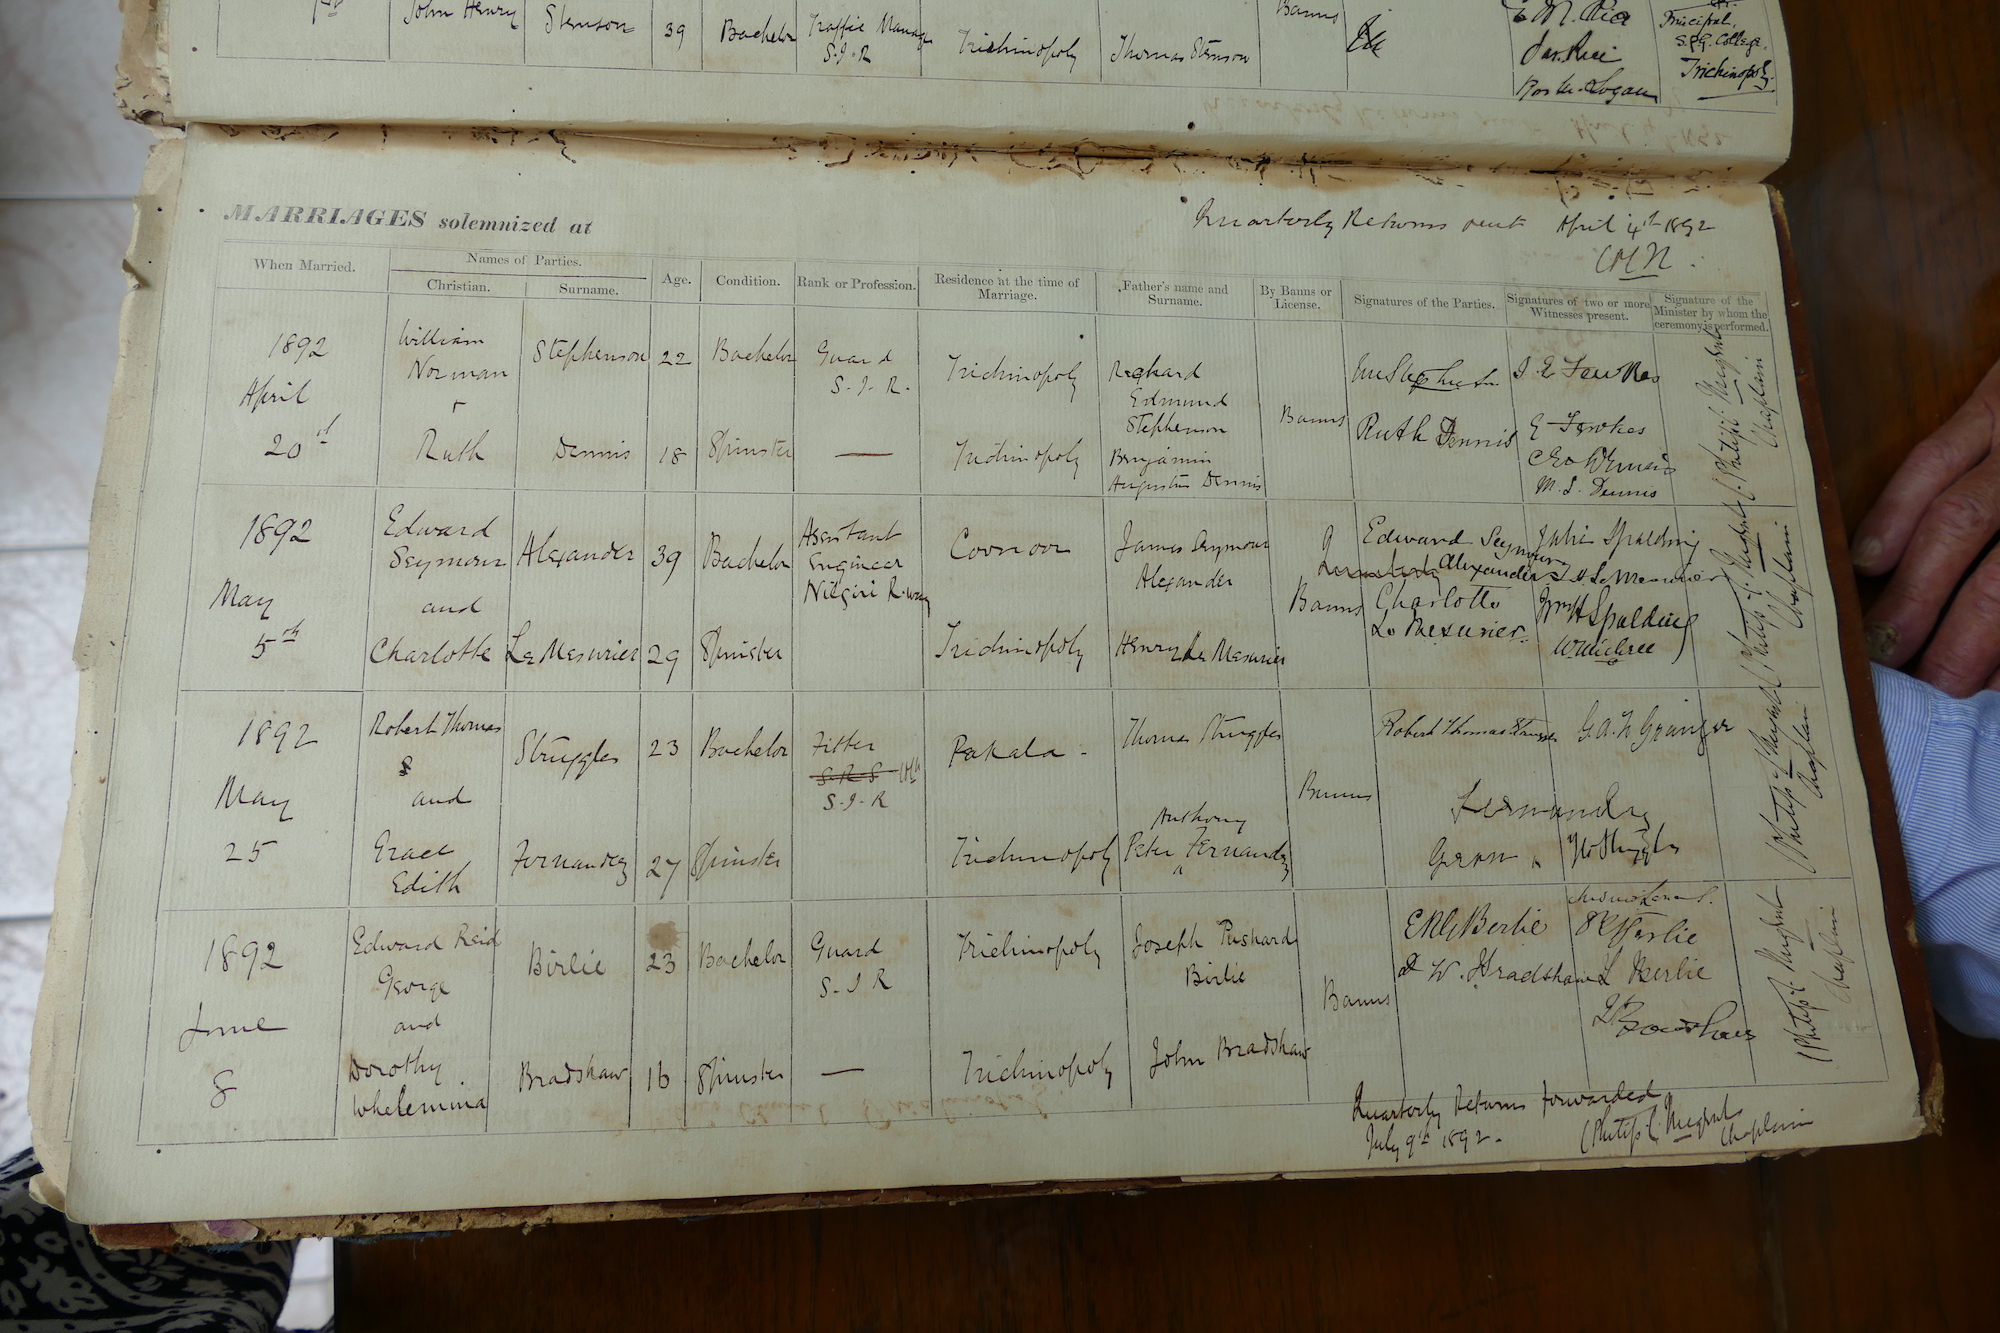 John Henry Stenson 39 Bachelor Traffic Manager S.I.R Trichinopoly Thomas Stenson Banns
Principal,
S.P.G. College,
Trichinopoly.
MARRIAGES solemnized at
Quarterly Returns sent April 4th 1892
When Married.
Names of Parties.
Christian.
Surname.
Age.
Condition.
Rank or Profession.
Residence at the time of Marriage.
Father's name and Surname.
By Banns or License.
Signatures of the Parties.
Signatures of two or more Witnesses present.
Signature of the Minister by whom the ceremony is performed.
1892
April
20th
William
Norman
Stephenson 22 Bachelor Guard
S.I.R.
Trichinopoly
Richard
Edmund
Stephenson
Banns
Ruth Dennis 18 Spinster — Trichinopoly
Benjamin
Augustus Dennis
Ruth Dennis
E Fewkes
M. L. Dennis
Chaplain
1892
May
5th
Edward
Seymour
and
Alexander 39 Bachelor
Assistant
Engineer
Nilgiri R.way
Coonoor
James Seymour
Alexander
Banns
Charlotte Le Mesurier 29 Spinster Trichinopoly Henry Le Mesurier
Edward Seymour
Alexander
Charlotte
Le Mesurier
Julia Spalding
Le Mesurier
Spalding
Chaplain
1892
May
25
Robert Thomas
and
Struggles 23 Bachelor Fitter
S.I.R
Pakala Thomas Struggles
Banns
Grace
Edith
Fernandez 27 Spinster Trichinopoly
Peter Anthony Fernandez
Robert Thomas Struggles
G.A.F. Grainger
Chaplain
1892
June
8
Edward Reid
George
and
Birlie 23 Bachelor Guard
S.I.R
Trichinopoly
Joseph Pushard
Birlie
Banns
Dorothy
Whelemina
Bradshaw 16 Spinster — Trichinopoly John Bradshaw
E R G Berlie
D W. Bradshaw
L Berlie
Chaplain
Quarterly Returns forwarded
July 9th 1892.
Chaplain